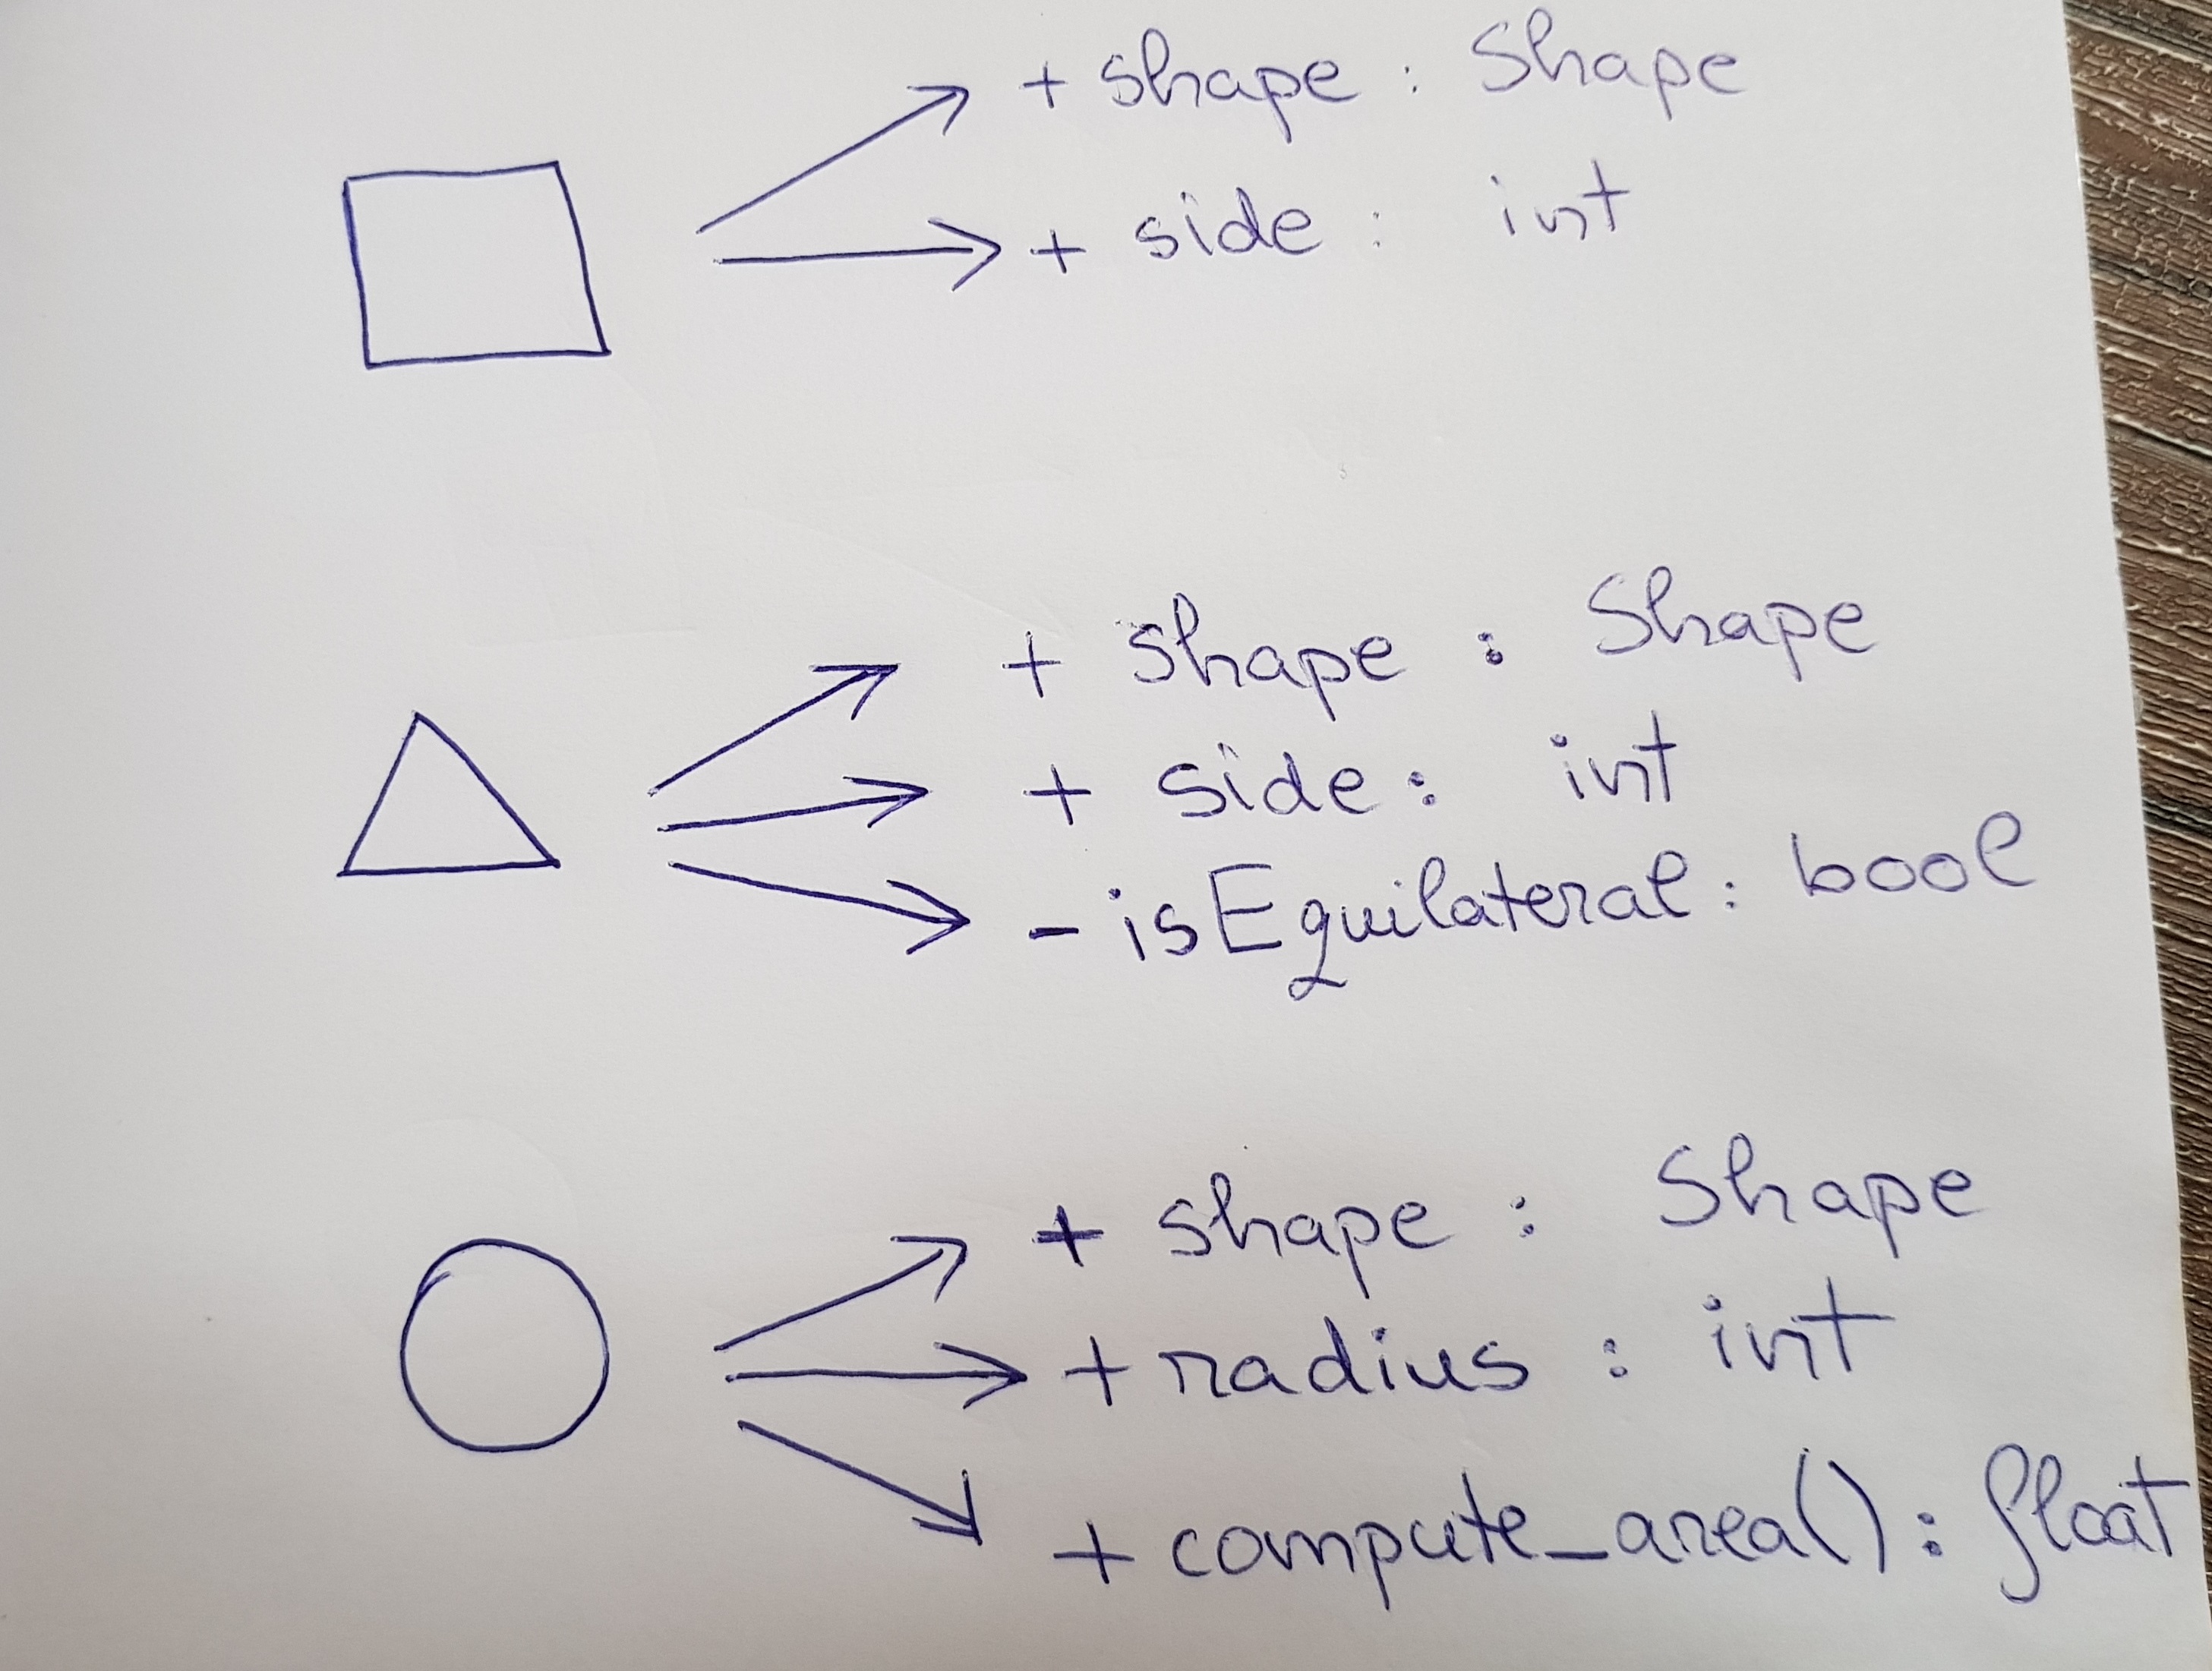 + shape : Shape
+ side : int
+ shape : Shape
+ side : int
- isEquilateral : bool
+ shape : Shape
+ radius : int
+ compute_area() : float